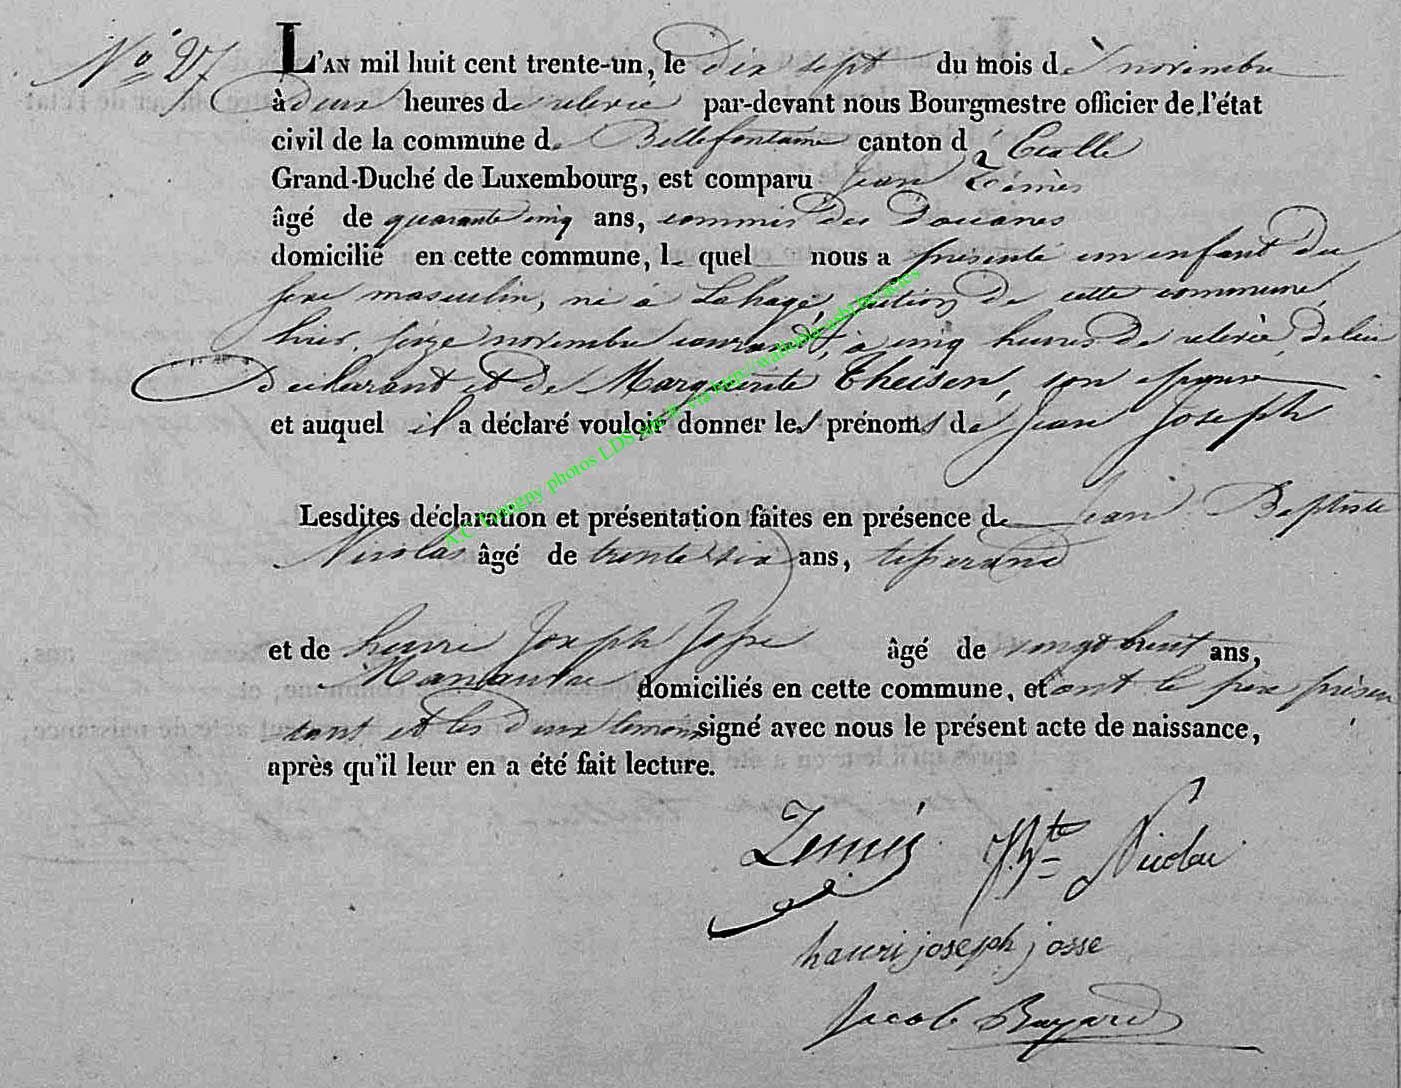 N.° 27
L'AN mil huit cent trente-un, le dix sept du mois de novembre
à deux heures de relevée par-devant nous Bourgmestre officier de l'état
civil de la commune de Bellefontaine canton d'Etalle
Grand-Duché de Luxembourg, est comparu Jean
âgé de quarante cinq ans, commis des Douanes
domicilié en cette commune, lequel nous a présenté un enfant du
sexe masculin, né à Lahage, section de cette commune,
hier, seize novembre courant, à cinq heures de relevée, de lui
Déclarant et de Marguerite Theisen, son épouse
et auquel il a déclaré vouloir donner les prénoms de Jean Joseph
Lesdites déclaration et présentation faites en présence de Jean Baptiste
Nicolas âgé de trente six ans, tisserand
et de henri Joseph Josse âgé de vingt huit ans,
domiciliés en cette commune, et ont le père présen
tant et les deux témoins signé avec nous le présent acte de naissance,
après qu'il leur en a été fait lecture.
J. Bte Nicolas
henri joseph josse
Jacob Bayard
A.C Tintigny photos LDS mise via http://wallonia-asbl.be/actes